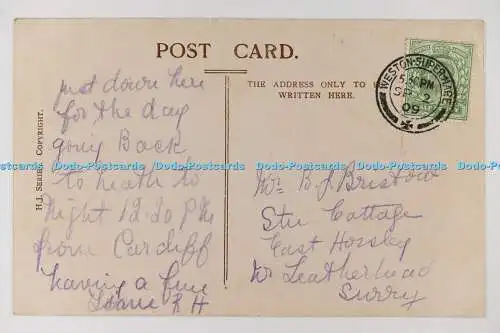 POST CARD.
THE ADDRESS ONLY TO
WRITTEN HERE.
H.J. SERIES COPYRIGHT.
WESTON-SUPER-MARE
5.30 PM
SP 2
09
just down here
for the day
going Back
to neath to
night 12-20 PM
from Cardiff
having a fine
R H
B J Bristow
Cottage
East Horsley
Nr Leatherhead
Surry
Dodo-Postcards Dodo-Postcards Dodo-Postcards Dodo-Postcards Dodo-Postcards Dodo-Postcards